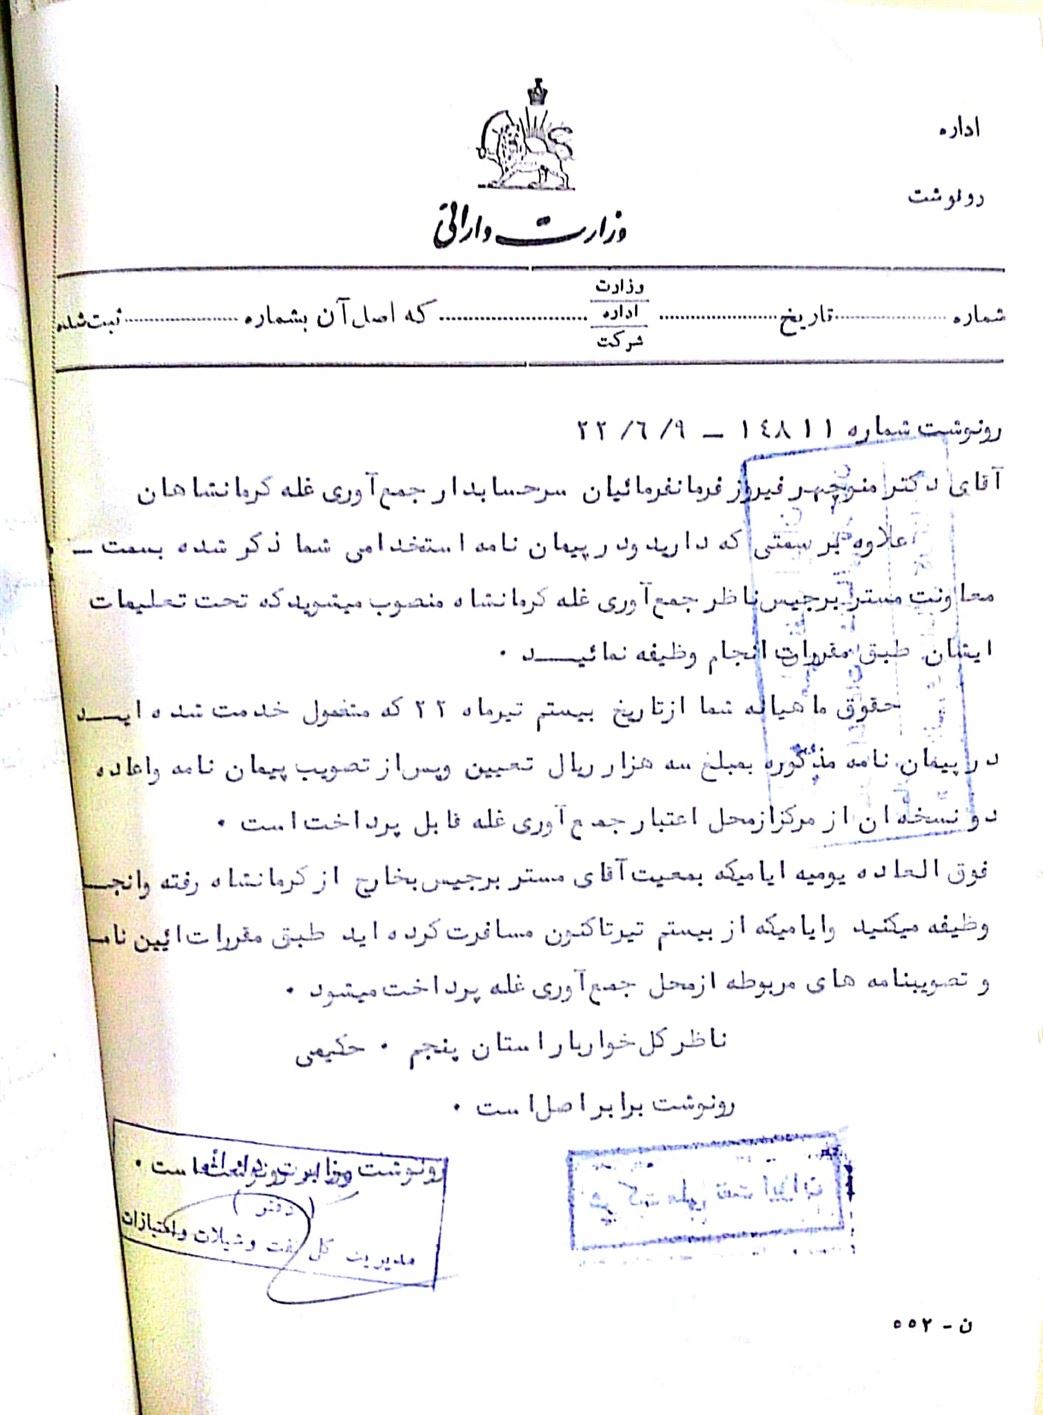 اداره
رونوشت
وزارت دارائی
شماره ........ تاریخ ........ وزارت اداره شرکت ........ که اصل آن بشماره ........ ثبت شده
رونوشت شماره ١٤٨١١ – ٢٢/٦/٩
آقای دکتر منوچهر فیروز فرمانفرمائیان سرحسابدار جمع‌آوری غله کرمانشاهان
علاوه بر سمتی که دارید و در پیمان نامه استخدامی شما ذکر شده بسمت –
معاونت مستر برجیس ناظر جمع‌آوری غله کرمانشاه منصوب میشوید که تحت تعلیمات
ایشان طبق مقررات انجام وظیفه نمائید ٠
حقوق ماهیانه شما از تاریخ بیستم تیرماه ٢٢ که مشغول خدمت شده اید
در پیمان نامه مذکوره بمبلغ سه هزار ریال تعیین و پس از تصویب پیمان نامه و اعاده
دو نسخه ان از مرکز از محل اعتبار جمع آوری غله قابل پرداخت است ٠
فوق العاده یومیه ایامیکه بمعیت آقای مستر برجیس بخارج از کرمانشاه رفته و انجا
وظیفه میکنید و ایامیکه از بیستم تیر تاکنون مسافرت کرده اید طبق مقررات ائین نامه
و تصویبنامه های مربوطه از محل جمع‌آوری غله پرداخت میشود ٠
ناظر کل خواربار استان پنجم ٠ حکیمی
رونوشت برابر اصل است ٠
رونوشت برابر رونوشت است ٠
(دفتر)
مدیریت کل نفت و شیلات و امتیازات
شرکت ملی نفت ایران
ن – ٥٥٢